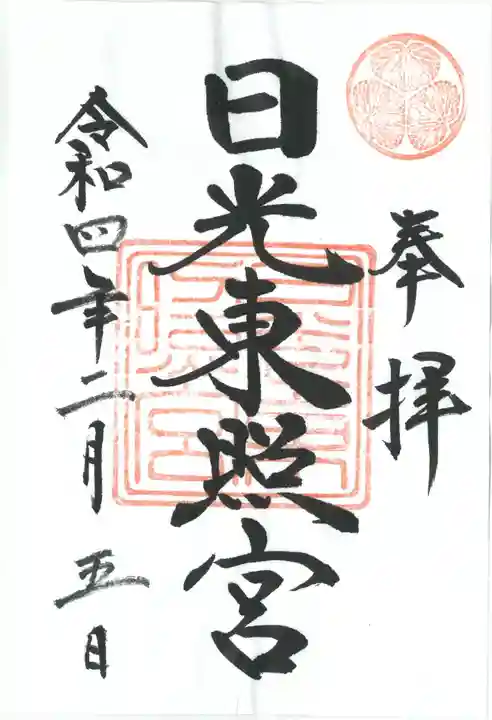 奉拝
日光東照宮
令和四年二月五日